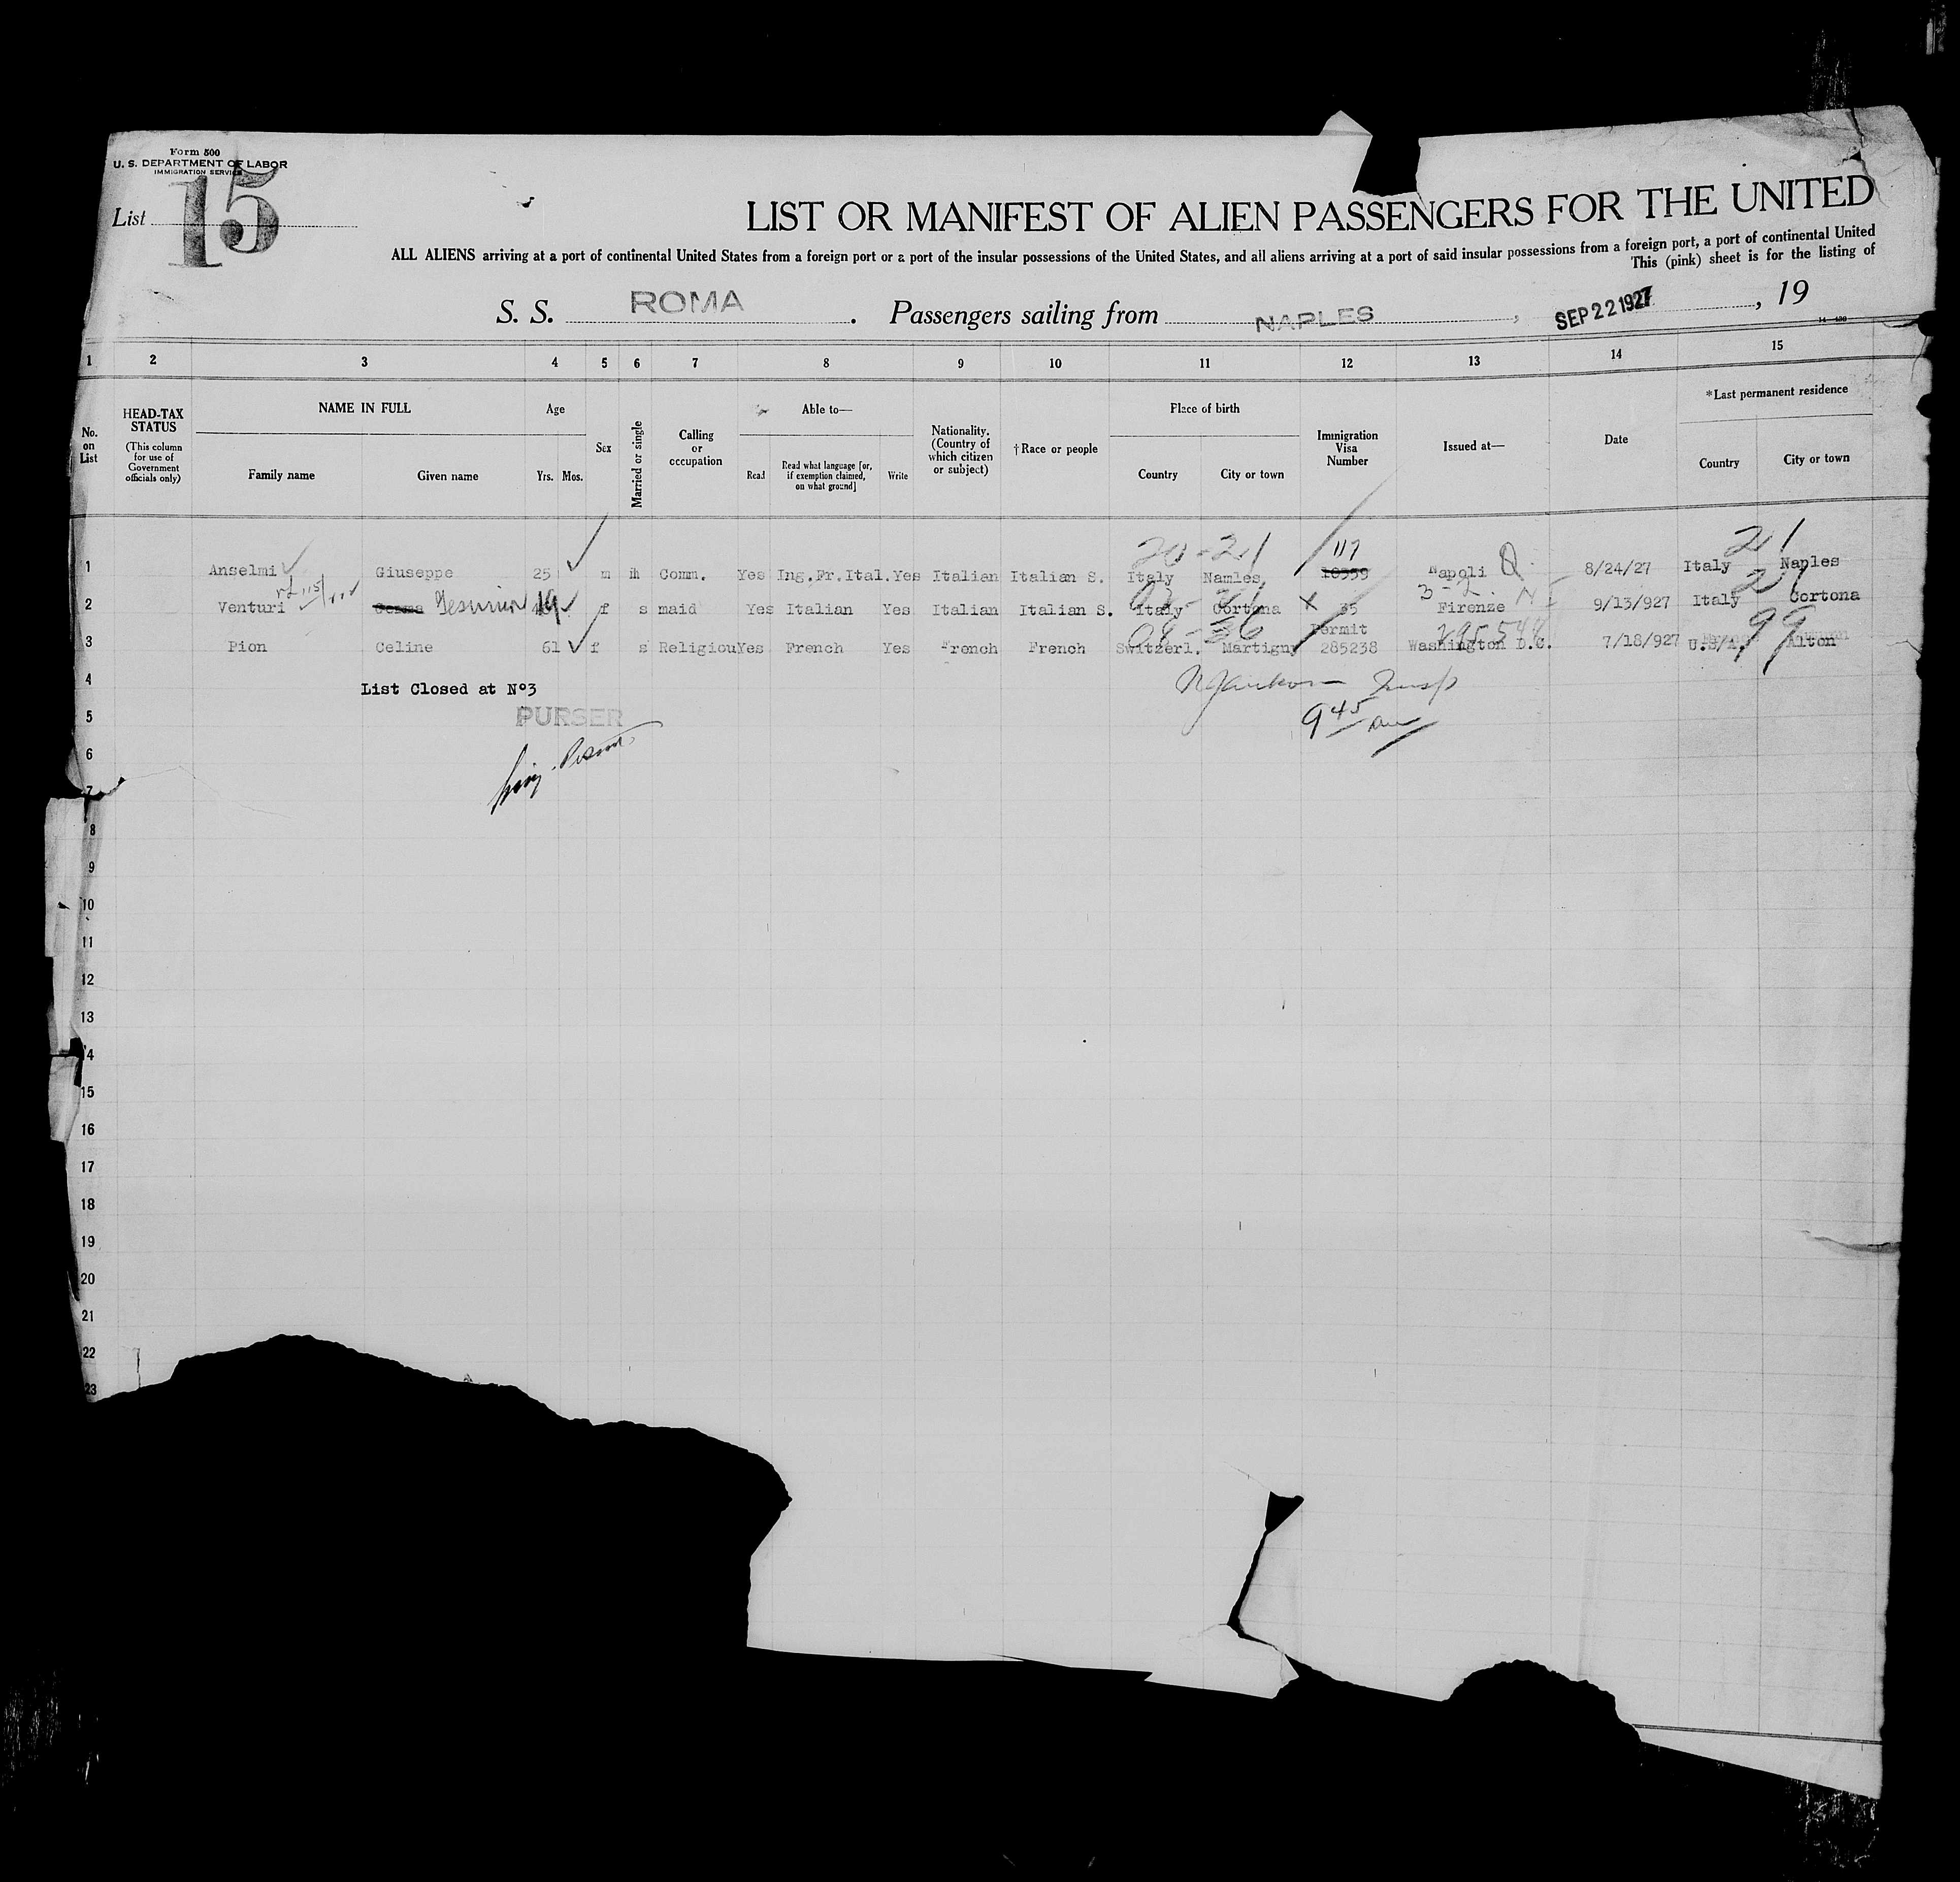 Form 500
U. S. DEPARTMENT OF LABOR
IMMIGRATION SERVICE
List 15
LIST OR MANIFEST OF ALIEN PASSENGERS FOR THE UNITED
ALL ALIENS arriving at a port of continental United States from a foreign port or a port of the insular possessions of the United States, and all aliens arriving at a port of said insular possessions from a foreign port, a port of continental United
This (pink) sheet is for the listing of
S. S. ROMA . Passengers sailing from NAPLES , SEP 22 1927 , 19
1 2 3 4 5 6 7 8 9 10 11 12 13 14 15
No. on List
HEAD-TAX STATUS
(This column for use of Government officials only)
NAME IN FULL
Family name Given name
Age
Yrs. Mos.
Sex
Married or single
Calling or occupation
Able to—
Read Read what language [or, if exemption claimed, on what ground] Write
Nationality. (Country of which citizen or subject)
†Race or people
Place of birth
Country City or town
Immigration Visa Number
Issued at—
Date
*Last permanent residence
Country City or town
20-21 117 21
1 Anselmi Giuseppe 25 m Comm. Yes Ing.Fr.Ital. Yes Italian Italian S. Italy Namles 18359 Napoli Q 8/24/27 Italy Naples
3-2 21
2 Venturi 19 f s maid Yes Italian Yes Italian Italian S. Italy Cortona X 35 Firenze 9/13/927 Italy Cortona
08-36 Permit 295544 99
3 Pion Celine 61 f s Religiou Yes French Yes French French Switzerl. Martigny 285238 Washington D.C. 7/18/927 U.S/A. Alton
4 List Closed at Nº3
5 PURSER
9 45 am
6
7
8
9
10
11
12
13
14
15
16
17
18
19
20
21
22
23